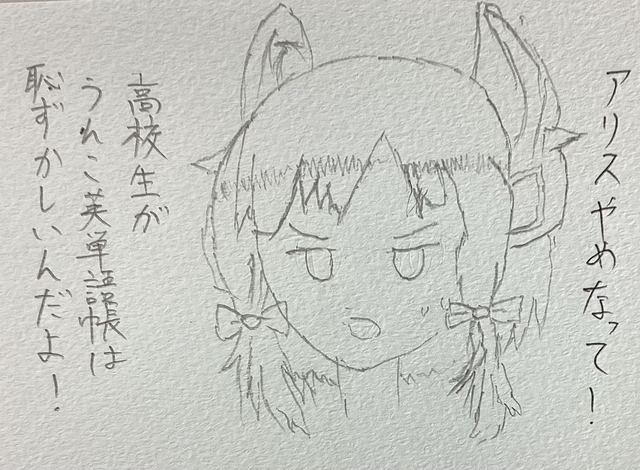 アリスやめなって！
高校生が
うんこ英単語帳は
恥ずかしいんだよ！